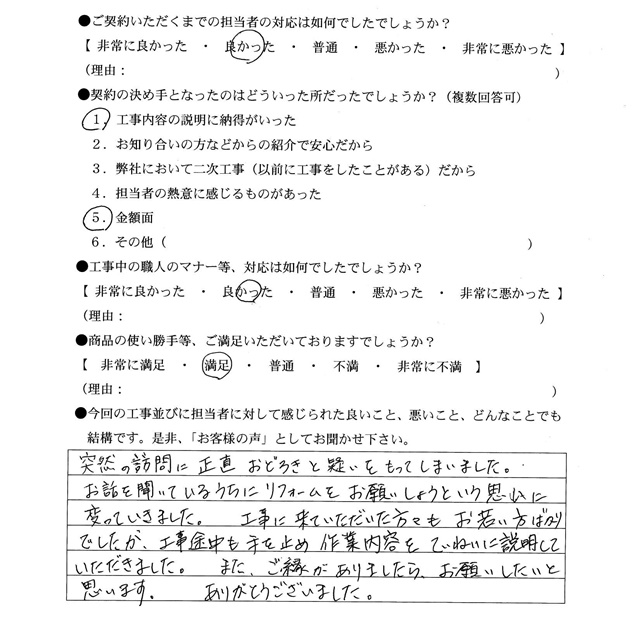 ●ご契約いただくまでの担当者の対応は如何でしたでしょうか？
【 非常に良かった ・ 良かった ・ 普通 ・ 悪かった ・ 非常に悪かった 】
（理由： ）
●契約の決め手となったのはどういった所だったでしょうか？（複数回答可）
1．工事内容の説明に納得がいった
2．お知り合いの方などからの紹介で安心だから
3．弊社において二次工事（以前に工事をしたことがある）だから
4．担当者の熱意に感じるものがあった
5．金額面
6．その他（ ）
●工事中の職人のマナー等、対応は如何でしたでしょうか？
【 非常に良かった ・ 良かった ・ 普通 ・ 悪かった ・ 非常に悪かった 】
（理由： ）
●商品の使い勝手等、ご満足いただいておりますでしょうか？
【 非常に満足 ・ 満足 ・ 普通 ・ 不満 ・ 非常に不満 】
（理由： ）
●今回の工事並びに担当者に対して感じられた良いこと、悪いこと、どんなことでも
結構です。是非、「お客様の声」としてお聞かせ下さい。
突然の訪問に正直おどろきと疑いをもってしまいました。
お話を聞いているうちにリフォームをお願いしようという思いに
変っていきました。 工事に来ていただいた方々もお若い方ばかり
でしたが、工事途中も手を止め作業内容をていねいに説明して
いただきました。 また、ご縁がありましたら、お願いしたいと
思います。 ありがとうございました。